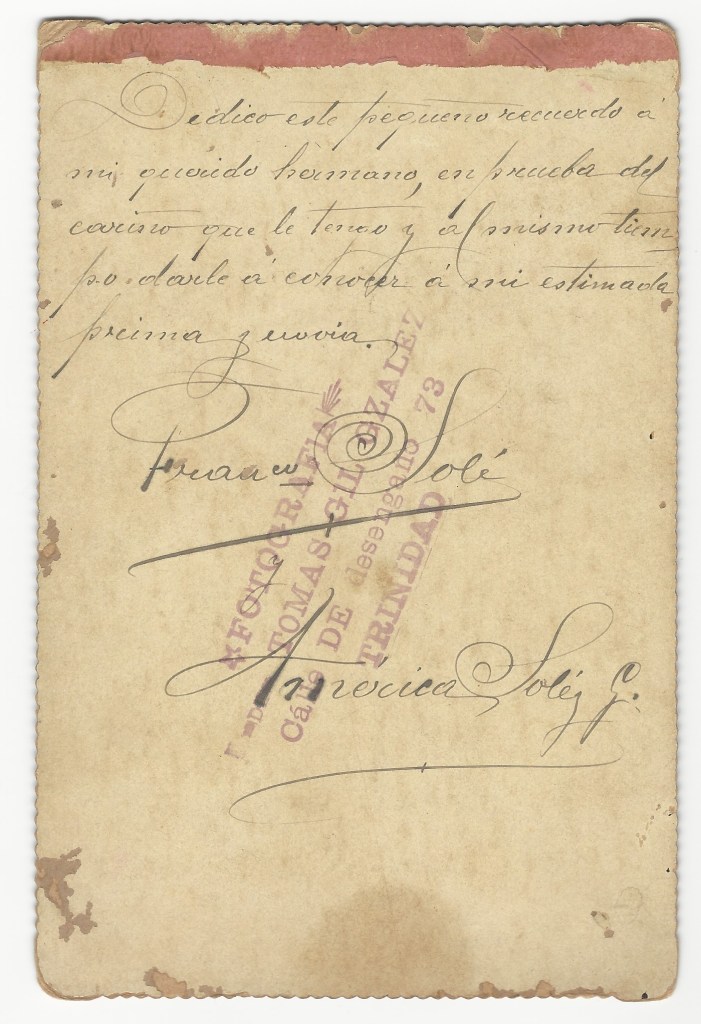 Dedico este pequeño recuerdo á
mi querido hermano, en prueba del
cariño que le tengo y al mismo tiem
po darle á conocer á mi estimada
prima y novia.
Franco Solé
y
América Solé y G.
FOTOGRAFIA
TOMAS GIL GZALEZ
Cálle DE desengaño 73
TRINIDAD